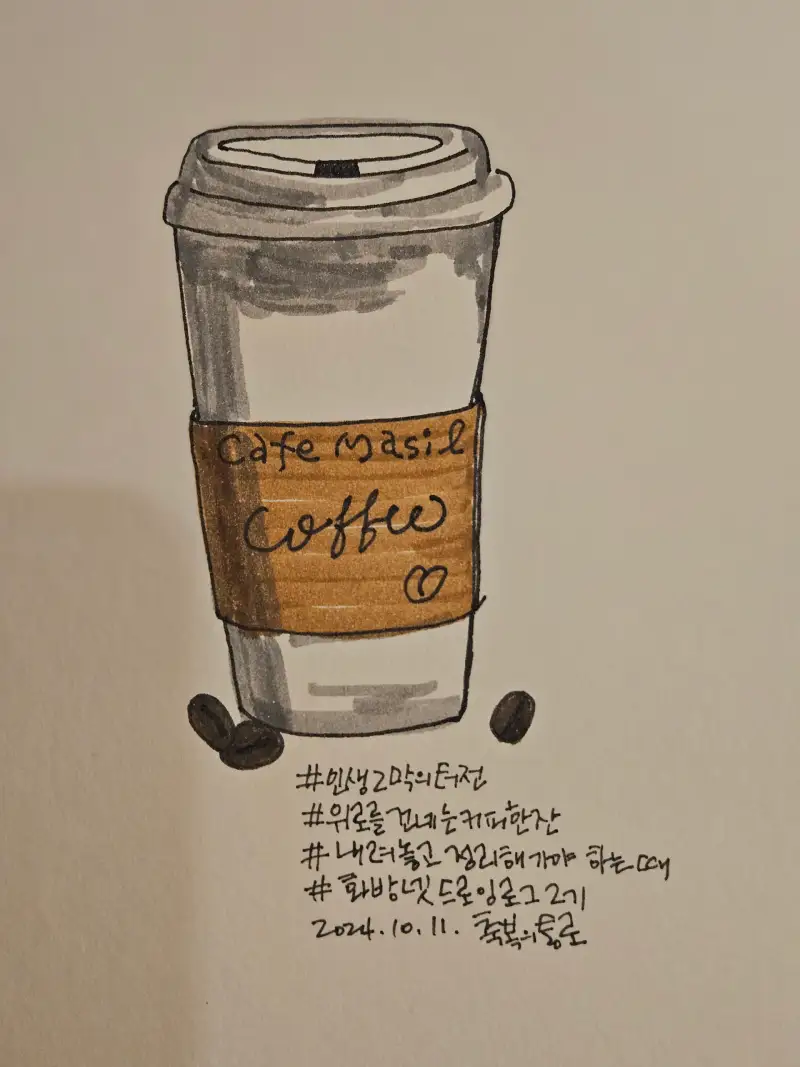 Cafe Masil
Coffee
#인생2막의터전
#위로를 건네는커피한잔
#내려놓고 정리해가야 하는때
#화방넷드로잉로그2기
2024.10.11. 축복의통로